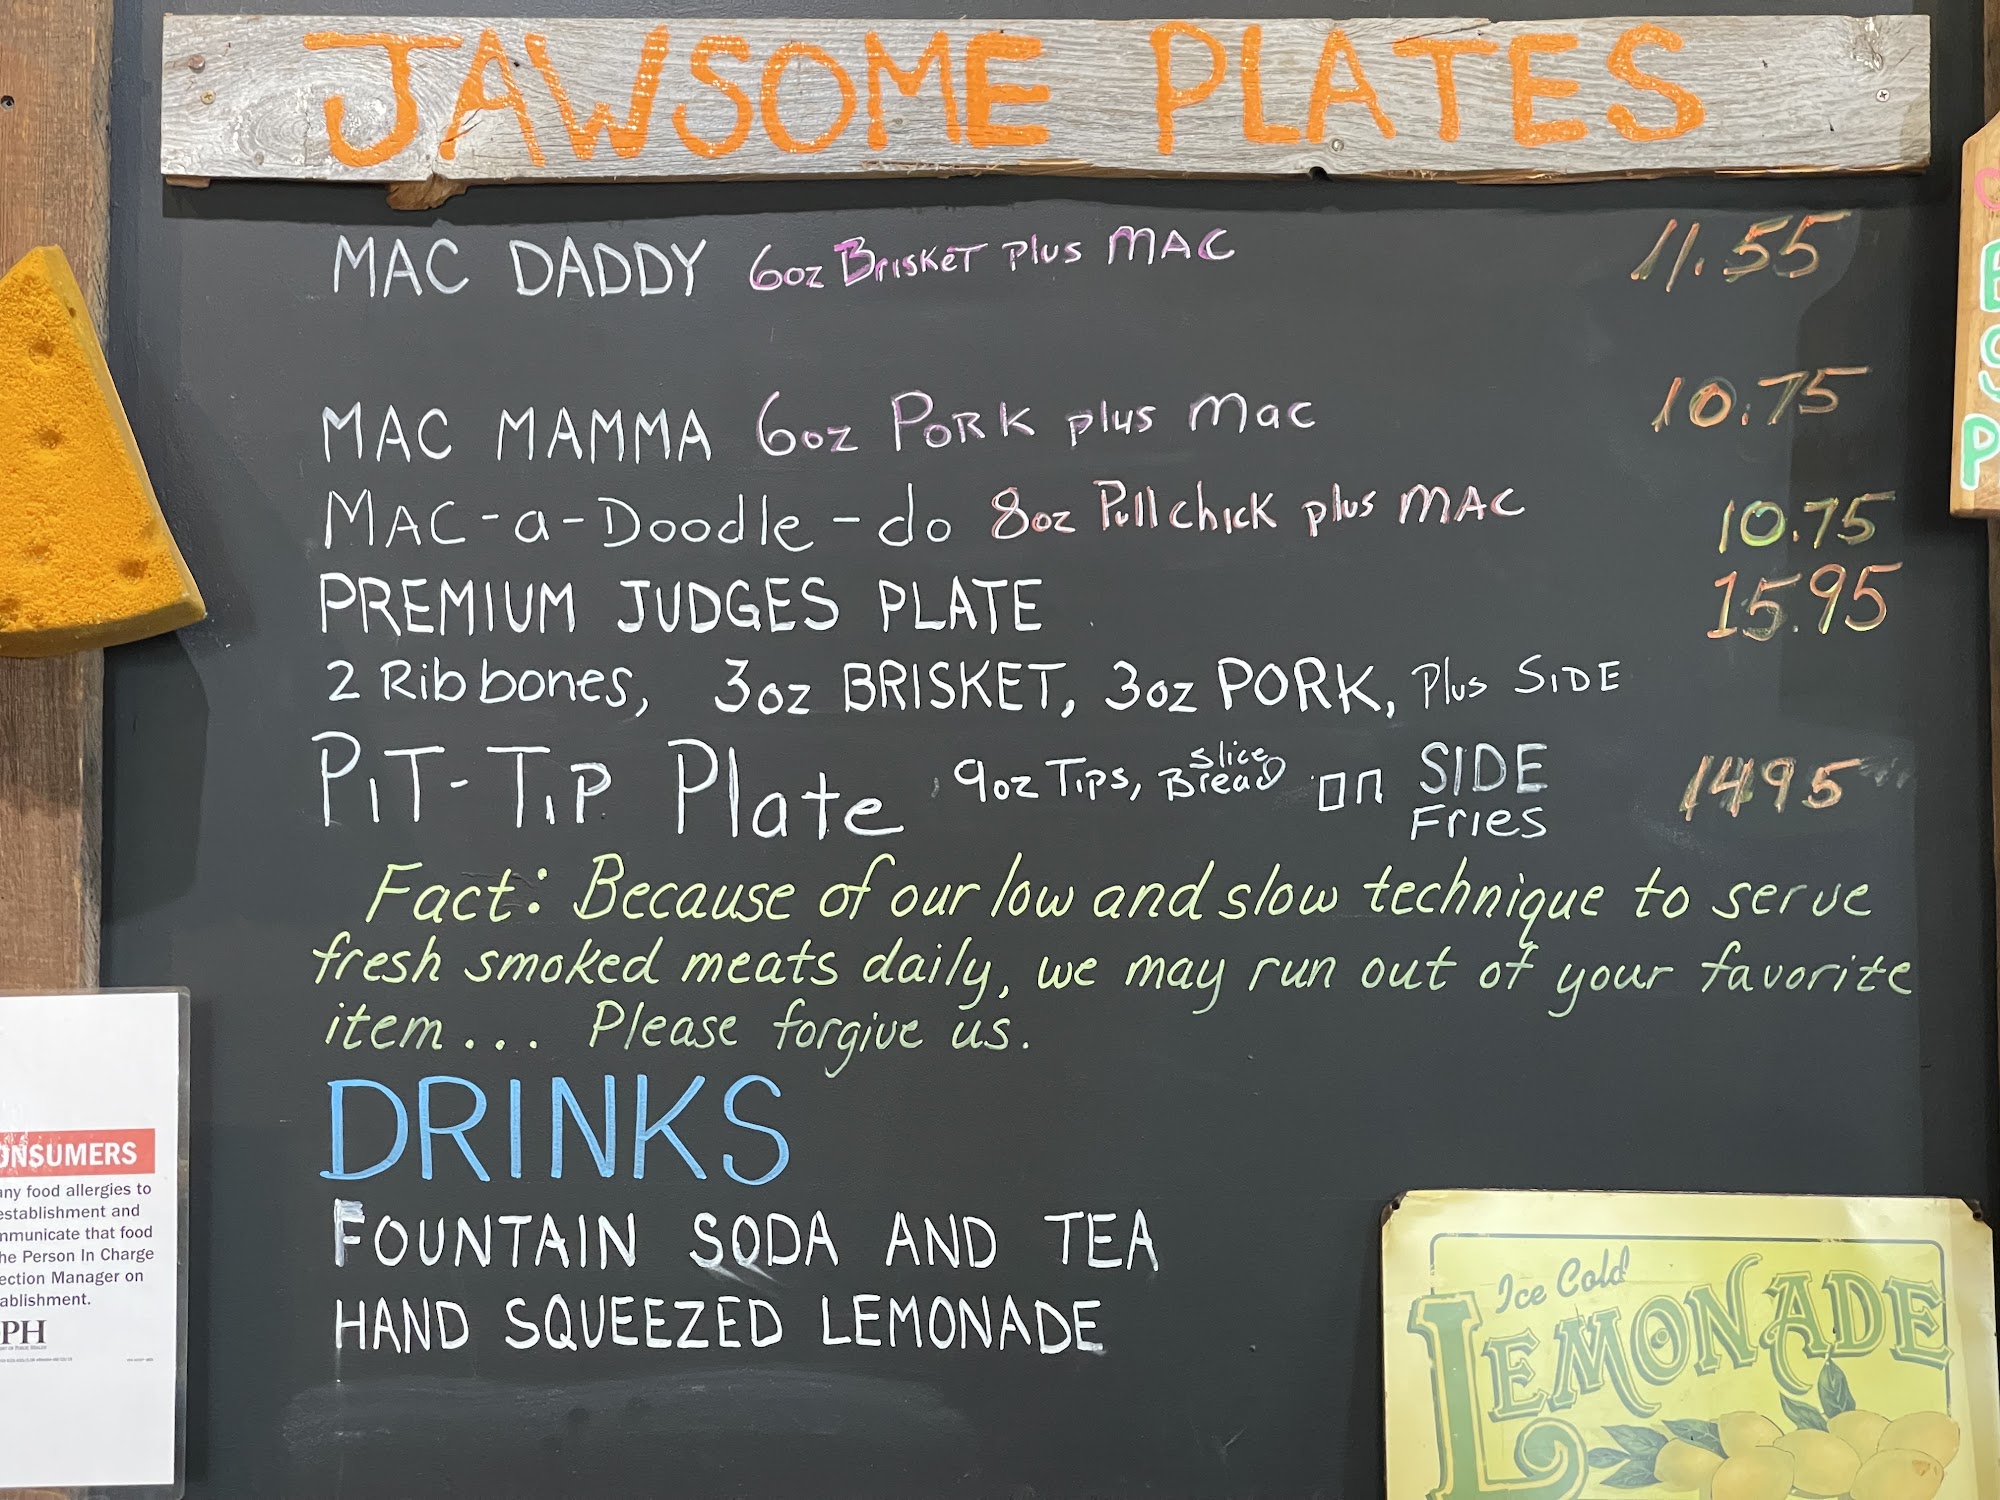 JAWSOME PLATES
MAC DADDY 6oz Brisket plus MAC 11.55
MAC MAMMA 6oz PORK plus mac 10.75
MAC-a-Doodle-do 8oz Pull chick plus MAC 10.75
PREMIUM JUDGES PLATE 15.95
2 Rib bones, 3oz BRISKET, 3oz PORK, Plus SIDE
PIT-TIP Plate 9oz Tips, slice Bread on SIDE Fries 1495
Fact: Because of our low and slow technique to serve
fresh smoked meats daily, we may run out of your favorite
item... Please forgive us.
DRINKS
FOUNTAIN SODA AND TEA
HAND SQUEEZED LEMONADE
Ice Cold
LEMONADE
ONSUMERS
any food allergies to
establishment and
mmunicate that food
he Person In Charge
ection Manager on
ablishment.
PH
E
S
P